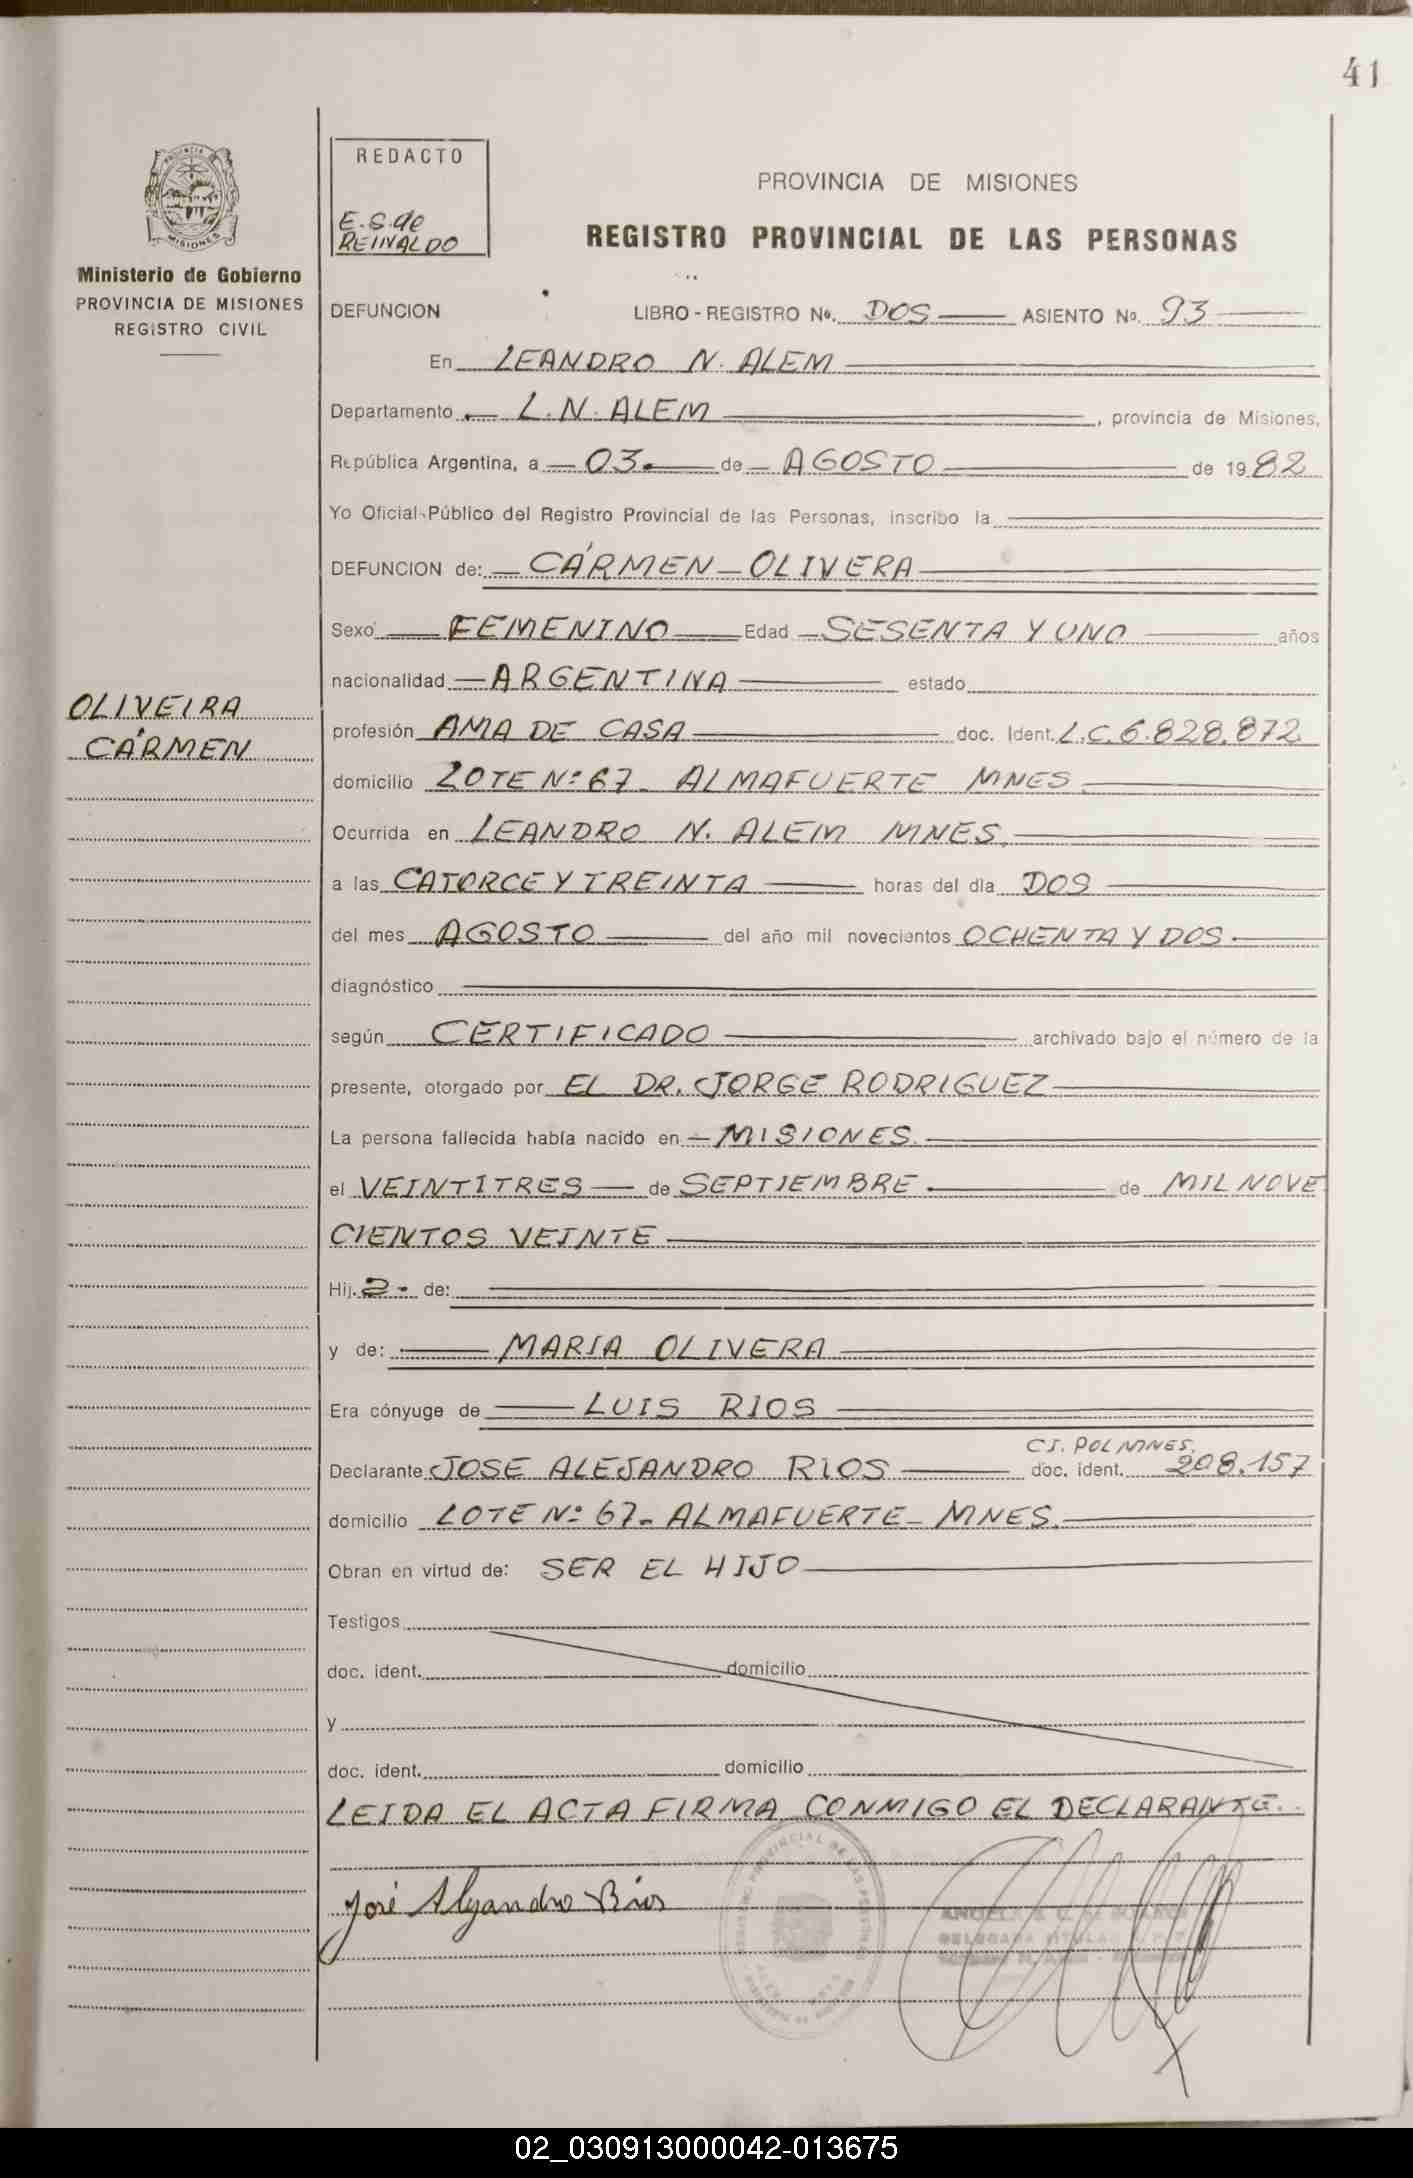 41
REDACTO
E. G. de
REINALDO
PROVINCIA DE MISIONES
REGISTRO PROVINCIAL DE LAS PERSONAS
PROVINCIA
MISIONES
Ministerio de Gobierno
PROVINCIA DE MISIONES
REGISTRO CIVIL
DEFUNCION LIBRO - REGISTRO No. DOS ASIENTO No. 93
En LEANDRO N. ALEM
Departamento L. N. ALEM, provincia de Misiones,
República Argentina, a 03 de AGOSTO de 1982
Yo Oficial Público del Registro Provincial de las Personas, inscribo la
DEFUNCION de: CÁRMEN OLIVERA
Sexo FEMENINO Edad SESENTA Y UNO años
nacionalidad ARGENTINA estado
OLIVEIRA
CÁRMEN
profesión AMA DE CASA doc. Ident. L.C. 6.828.872
domicilio LOTE Nº 67 - ALMAFUERTE MNES
Ocurrida en LEANDRO N. ALEM MNES.
a las CATORCE Y TREINTA horas del día DOS
del mes AGOSTO del año mil novecientos OCHENTA Y DOS.
diagnóstico
según CERTIFICADO archivado bajo el número de la
presente, otorgado por EL DR. JORGE RODRIGUEZ
La persona fallecida había nacido en MISIONES.
el VEINTITRES de SEPTIEMBRE de MIL NOVE
CIENTOS VEINTE
Hij. a de:
y de: MARIA OLIVERA
Era cónyuge de LUIS RIOS
CI. POL MNES.
Declarante JOSE ALEJANDRO RIOS doc. ident. 208.157
domicilio LOTE Nº 67 - ALMAFUERTE - MNES.
Obran en virtud de: SER EL HIJO
Testigos
doc. ident. domicilio
y
doc. ident. domicilio
LEIDA EL ACTA FIRMA CONMIGO EL DECLARANTE.
José Alejandro Rios
02_030913000042-013675